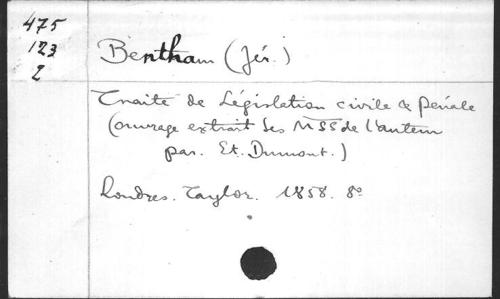 475
123
2
Bentham (Jér.)
Traité de Législation civile & pénale
(ouvrage extrait des MSS de l'auteur
par. Et. Dumont.)
Londres. Taylor. 1858. 8º